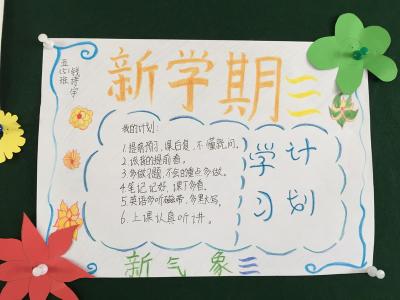 新学期
五(5)班
我的计划:
1.提前预习,课后复,不懂就问。
2.该背的提前看。
3.多做习题,不会的重点多做。
4.笔记记好,课下多看。
5.英语多听磁带,多默写。
6.上课认真听讲。
学习
计划
新气象